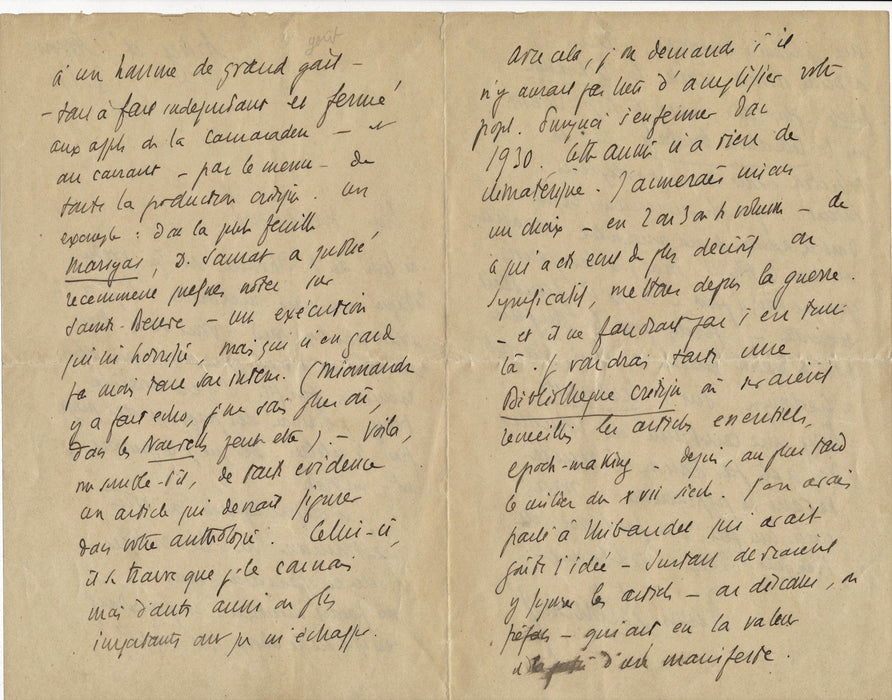 à un homme de grand goût –
– tout à fait indépendant et fermé
aux appels de la camaraderie – et
au courant – par le menu – de
toute la production critique. Un
exemple : dans la petite feuille
Marsyas, D. Saurat a publié
récemment quelques notes sur
Sainte-Beuve – une exécution
qui m'horrifie, mais qui n'en garde
pas moins tout son intérêt. (Miomandre
y a fait écho, je ne sais plus où,
dans les Nouvelles peut-être). – Voilà,
me semble-t-il, de toute évidence
un article qui devrait figurer
dans votre anthologie. Celui-ci,
il se trouve que je le connais
mais d'autres aussi ou plus
importants ont pu m'échapper.
Avec cela, je me demande s'il
n'y aurait pas lieu d'amplifier votre
projet. Pourquoi s'enfermer dans
1930. Cette année n'a rien de
climatérique. J'aimerais mieux
un choix – en 2 ou 3 ou 4 volumes – de
ce qui a été écrit de plus décisif ou
significatif, mettons depuis la guerre.
– et il ne faudrait pas s'en tenir
là. Je voudrais toute une
Bibliothèque critique où seraient
recueillis les articles essentiels,
epoch-making – depuis, au plus tard
le milieu du XVIIe siècle. J'en avais
parlé à Thibaudet qui avait
goûté l'idée – Surtout devraient
y figurer les articles – ou dédicaces, ou
préfaces – qui ont eu la valeur
d'un manifeste.